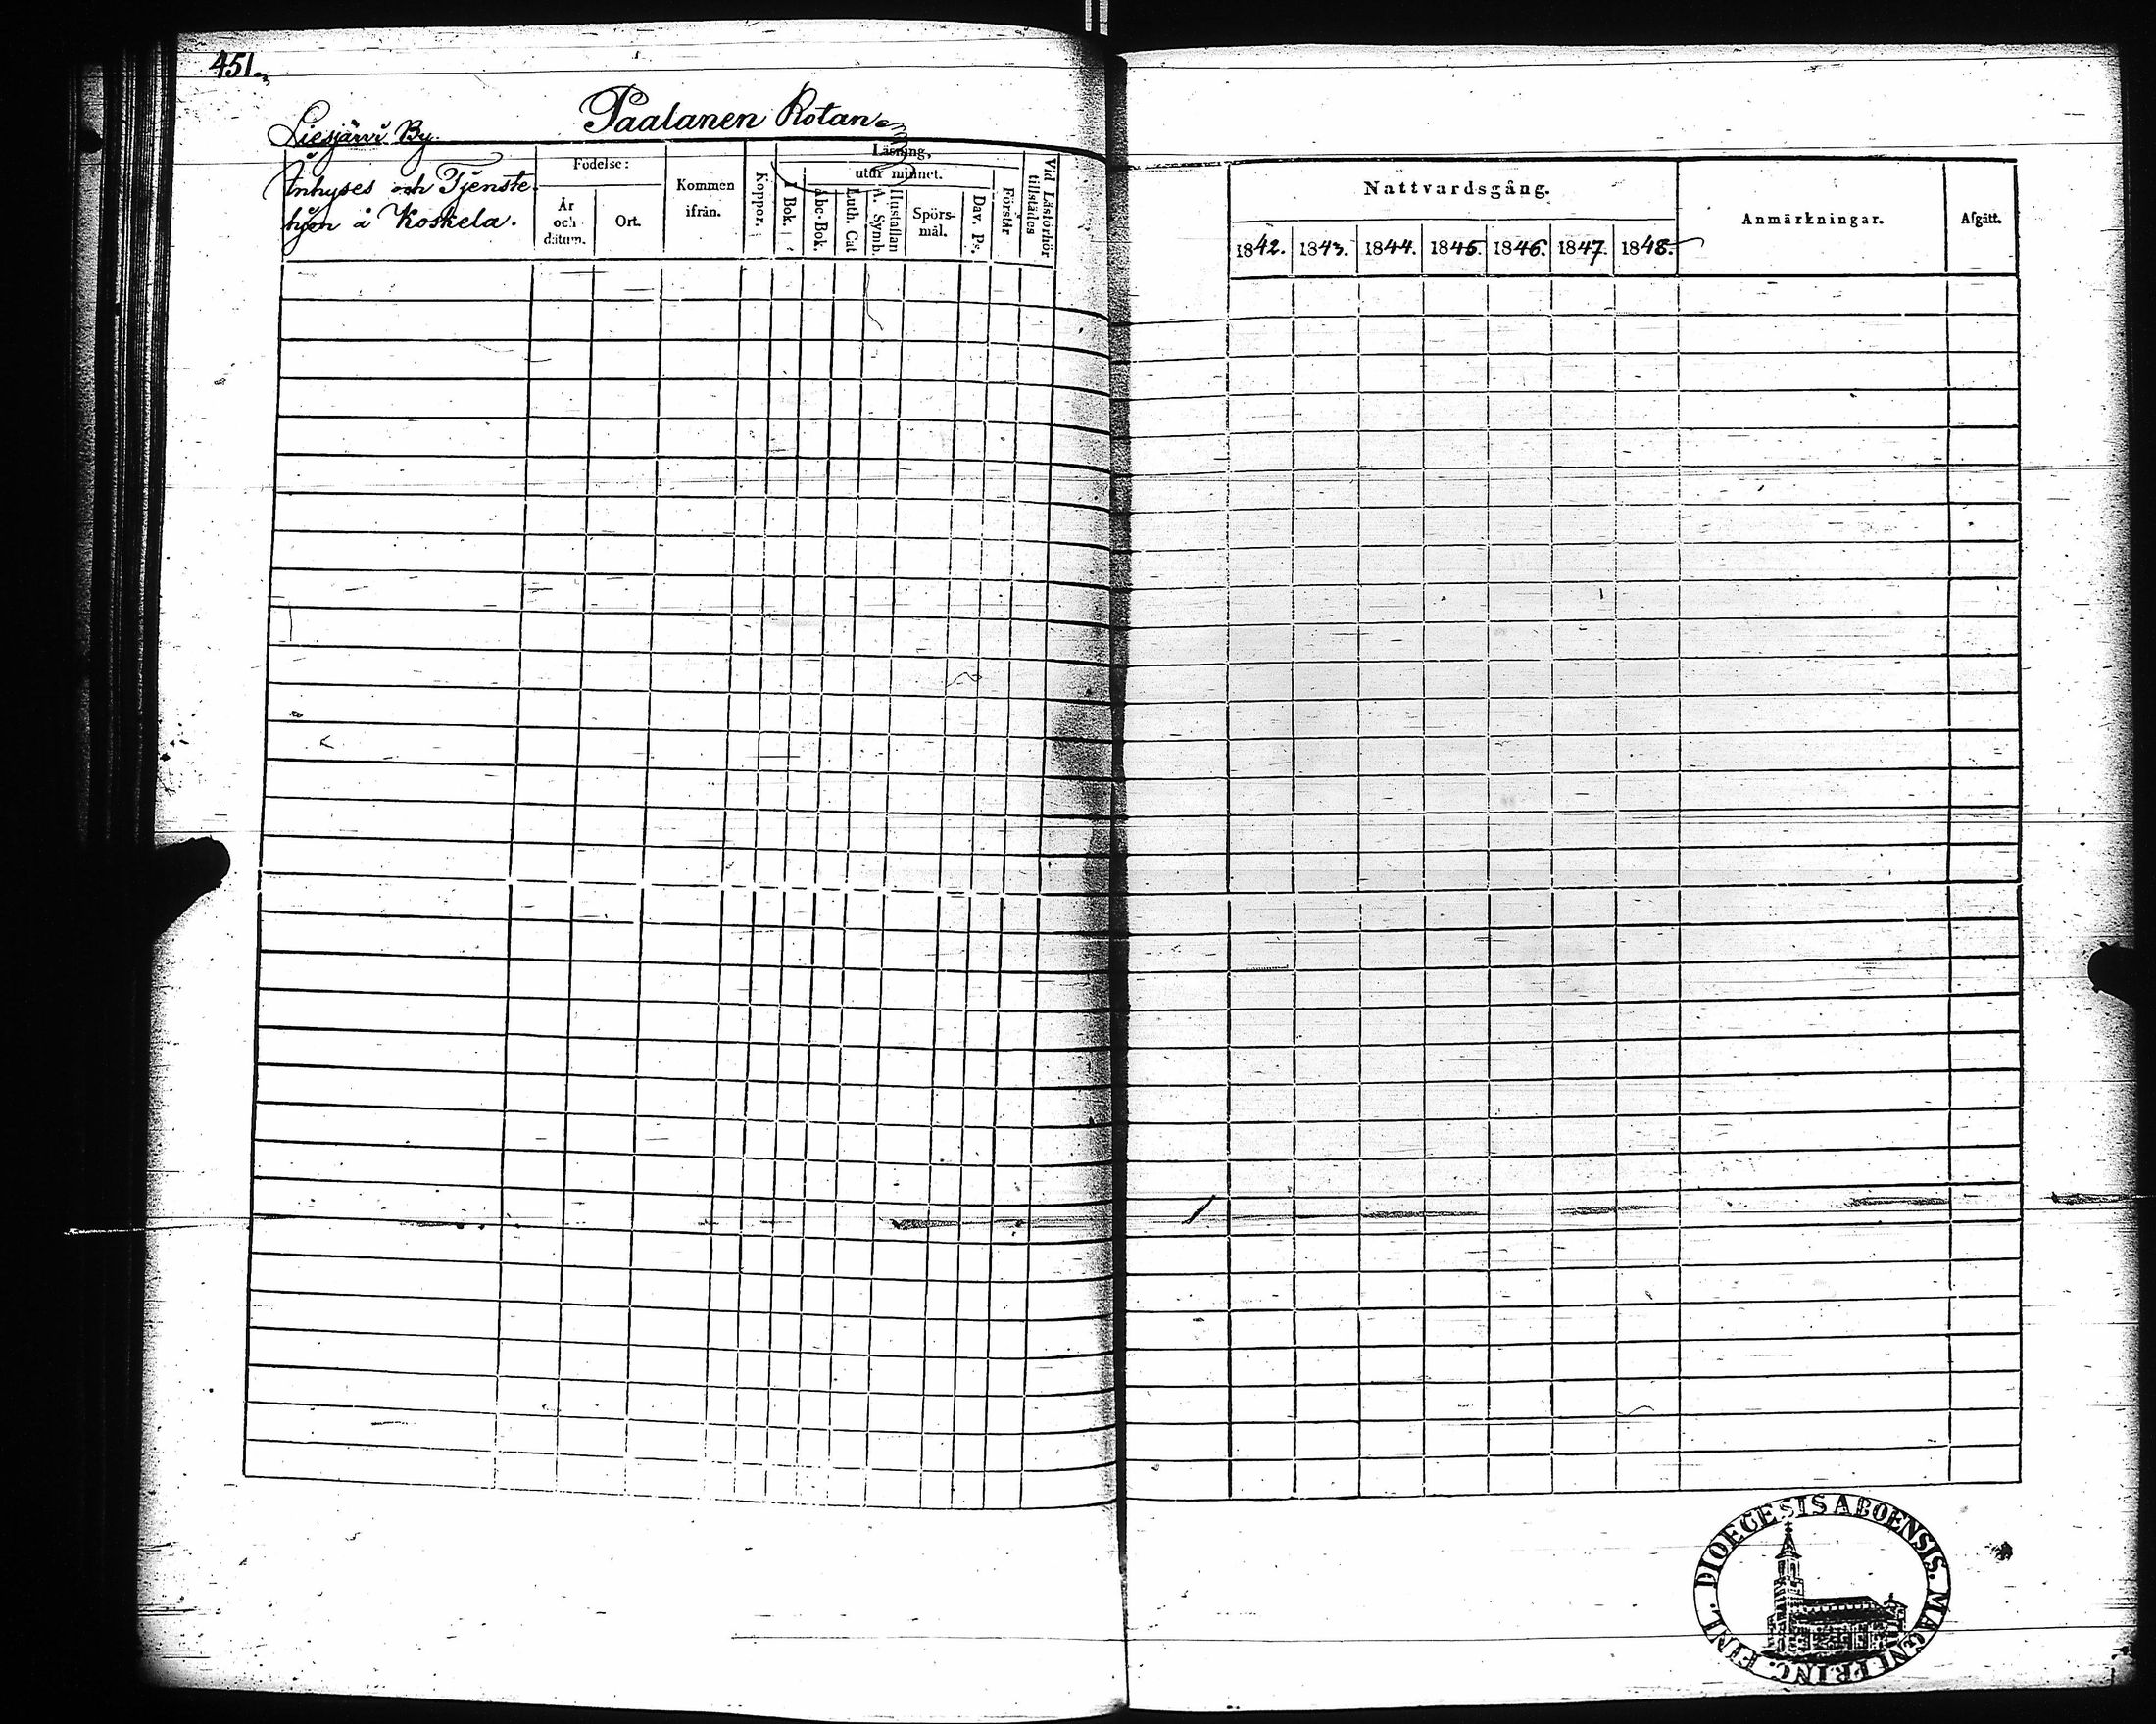 451.
Paalanen Rotan
Liesjärvi By.
Inhyses och Tjenste
hjon å Koskela.
Födelse:
År
och
datum.
Ort.
Kommen
ifrån.
Koppor.
Läsning,
utur minnet.
I Bok.
Abc-Bok.
Luth. Cat
A. Symb.
Hustaflan
Spörs-
mål.
Dav. Ps.
Förstår
Vid Läsförhör
tillstädes
Nattvardsgång.
1842. 1843. 1844. 1845. 1846. 1847. 1848.
Anmärkningar.
Afgått.
DIOECESIS ABOENSIS. MAGNI PRINC. FINL.